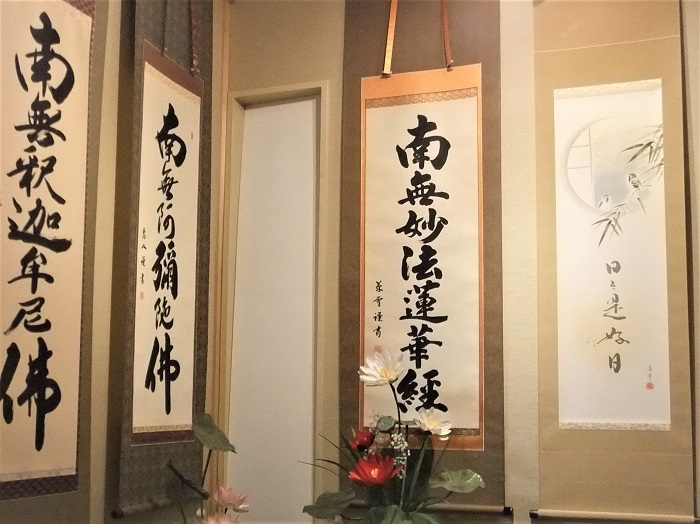 南無釈迦牟尼佛
南無阿彌陀佛
南無妙法蓮華經
日々是好日